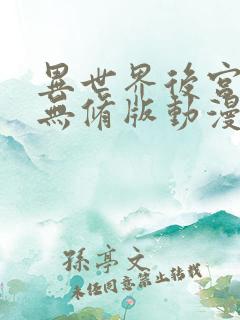 異世界後宮
無修版動漫
孫亭文
未任同意禁止转载